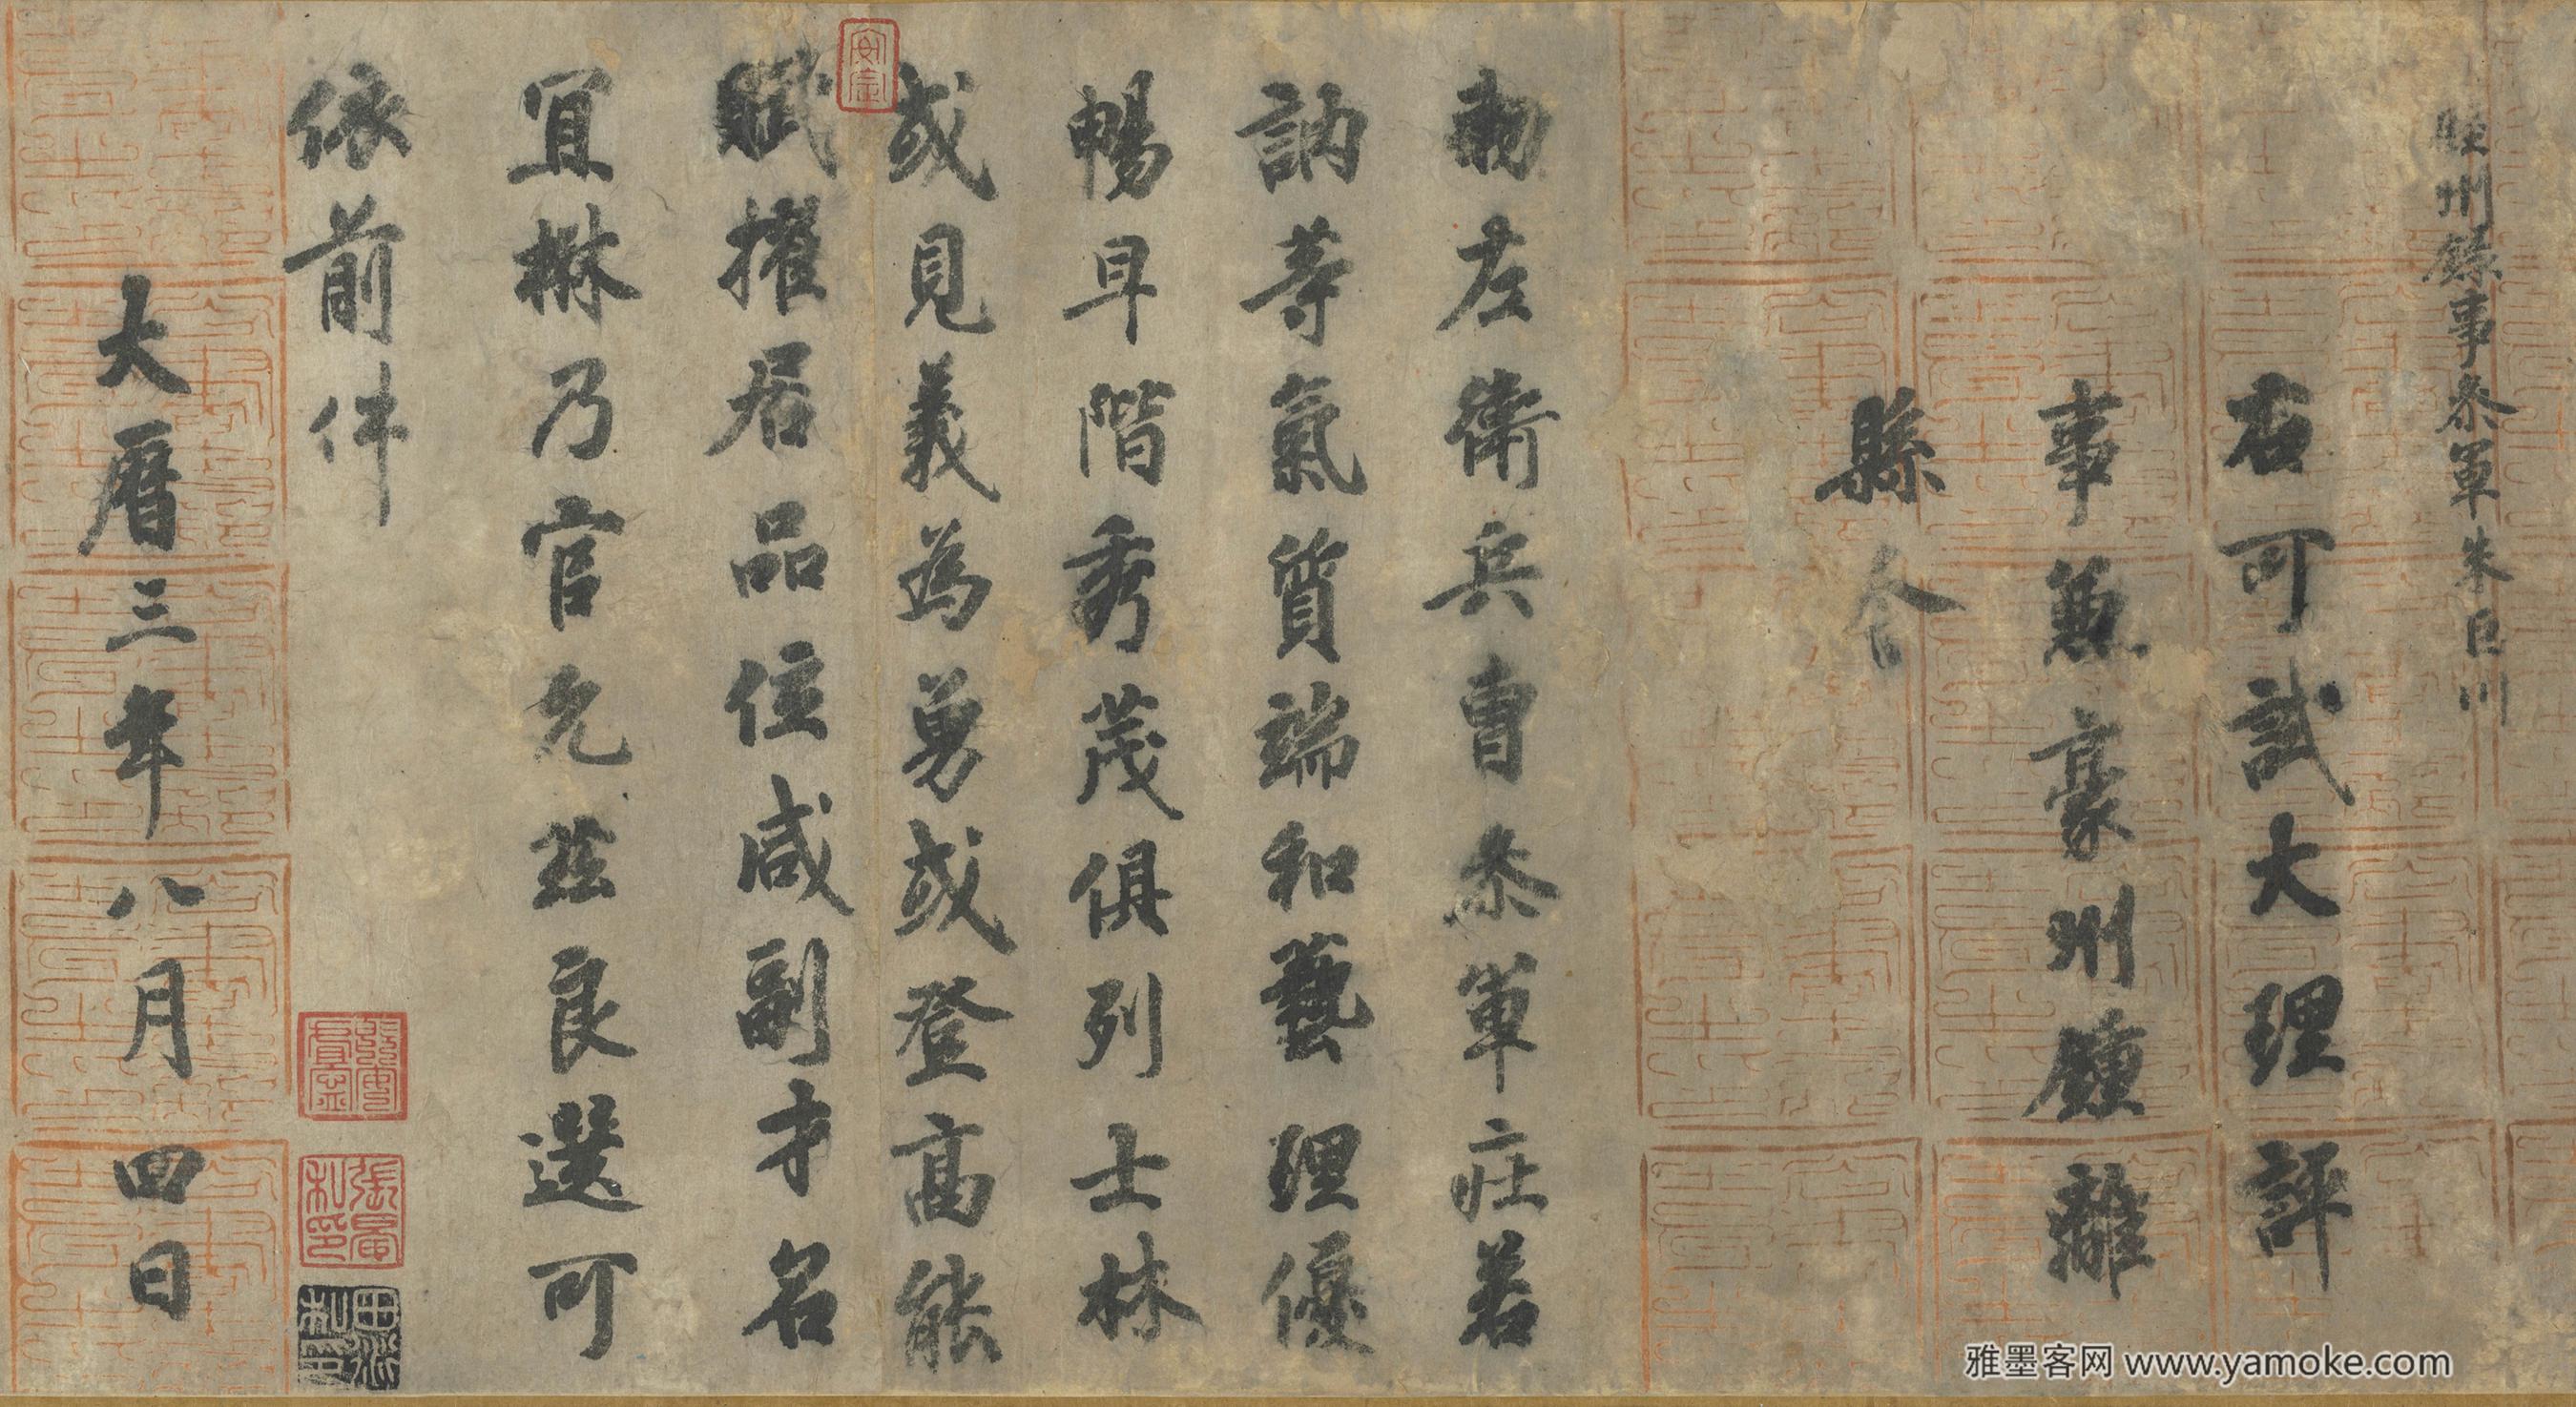 睦州錄事叅軍朱巨川
右可試大理評
事兼豪州鍾離
縣令
勑左衛兵曹叅軍莊若
訥等氣質端和藝理優
暢早階秀茂俱列士林
或見義為勇或登高能
賦擢居品位咸副才名
宜楙乃官允茲良選可
依前件
大曆三年八月四日
雅墨客网 www.yamoke.com